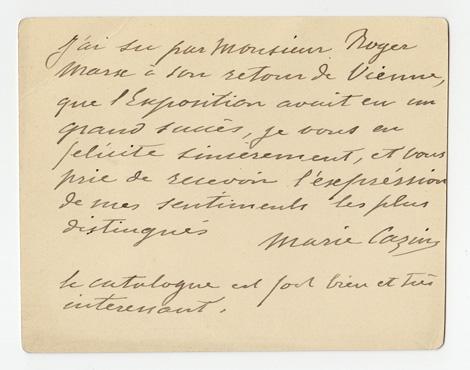 J'ai su par Monsieur Roger
Marx à son retour de Vienne,
que l'Exposition avait eu un
grand succès, je vous en
félicite sincèrement, et vous
prie de recevoir l'expréssion
de mes sentiments les plus
distingués
Marie Cazin
le catalogue est fort bien et très
interessant.